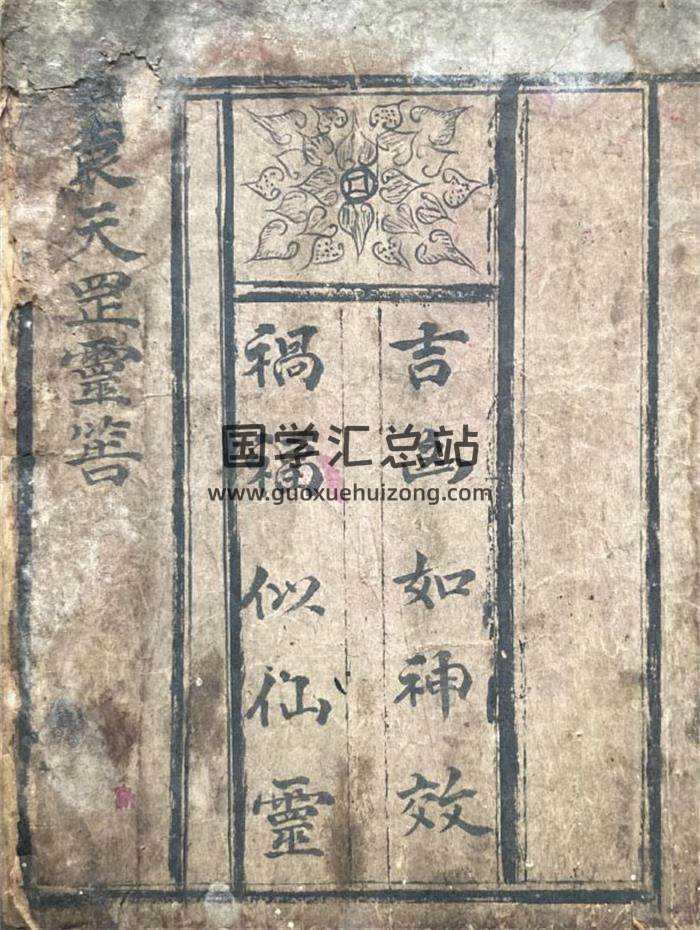 吉凶如神效
禍福似仙靈
袁天罡靈筶
国学汇总站
www.guoxuehuizong.com